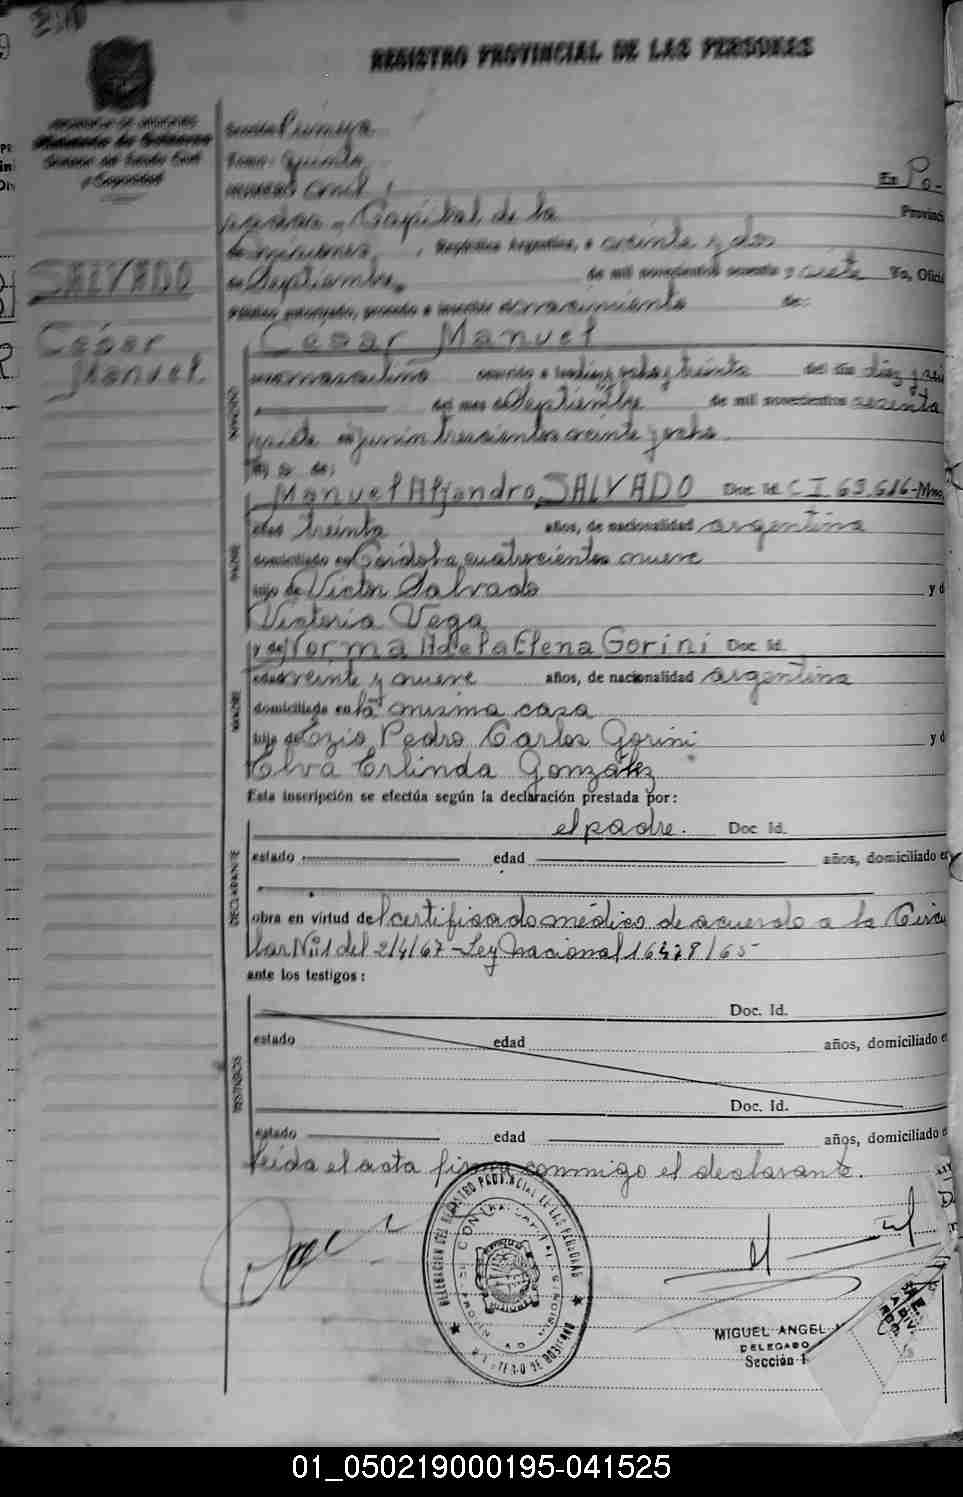 REGISTRO PROVINCIAL DE LAS PERSONAS
PROVINCIA DE MISIONES
Ministerio de Gobierno
y Seguridad
Sección Primera
Tomo quinto
NUMERO mil
En Po-
sadas Capital de la Provinci
de misiones, República Argentina, a veinte y dos
de Septiembre de mil novecientos sesenta y siete Yo, Oficia
Público autorizado, procedo a inscribir el nacimiento de:
SALVADO
César
Manuel
César Manuel
sexo masculino ocurrido a las diez y ocho y treinta del día diez y sei
del mes de Septiembre de mil novecientos sesenta
y siete en Junín trescientos veinte y ocho
hijo de:
Manuel Aljandro SALVADO Doc Id C I 63.616-Mnes
edad treinta años, de nacionalidad argentina
domiciliado en Córdoba cuatrocientos nueve
hijo de Victor Salvado y d
Victoria Vega
y de Norma Adela Elena Gorini Doc Id.
edad veinte y nueve años, de nacionalidad argentina
domiciliada en la misma casa
hija de Ezio Pedro Carlos Gorini y d
Elva Erlinda González
Esta inscripción se efectúa según la declaración prestada por:
el padre. Doc Id.
estado edad años, domiciliado e
obra en virtud del certificado médico de acuerdo a la Circu
lar Nº1 del 2/4/67-Ley Nacional 16478/65-
ante los testigos:
Doc. Id.
estado edad años, domiciliado e
Doc. Id.
estado edad años, domiciliado e
Leída el acta firma conmigo el declarante.
NACIDO
PADRE
MADRE
DECLARANTE
TESTIGOS
DELEGACION DEL REGISTRO PROVINCIAL DE LAS PERSONAS
MIGUEL ANGEL
DELEGADO
Sección 1
01_050219000195-041525